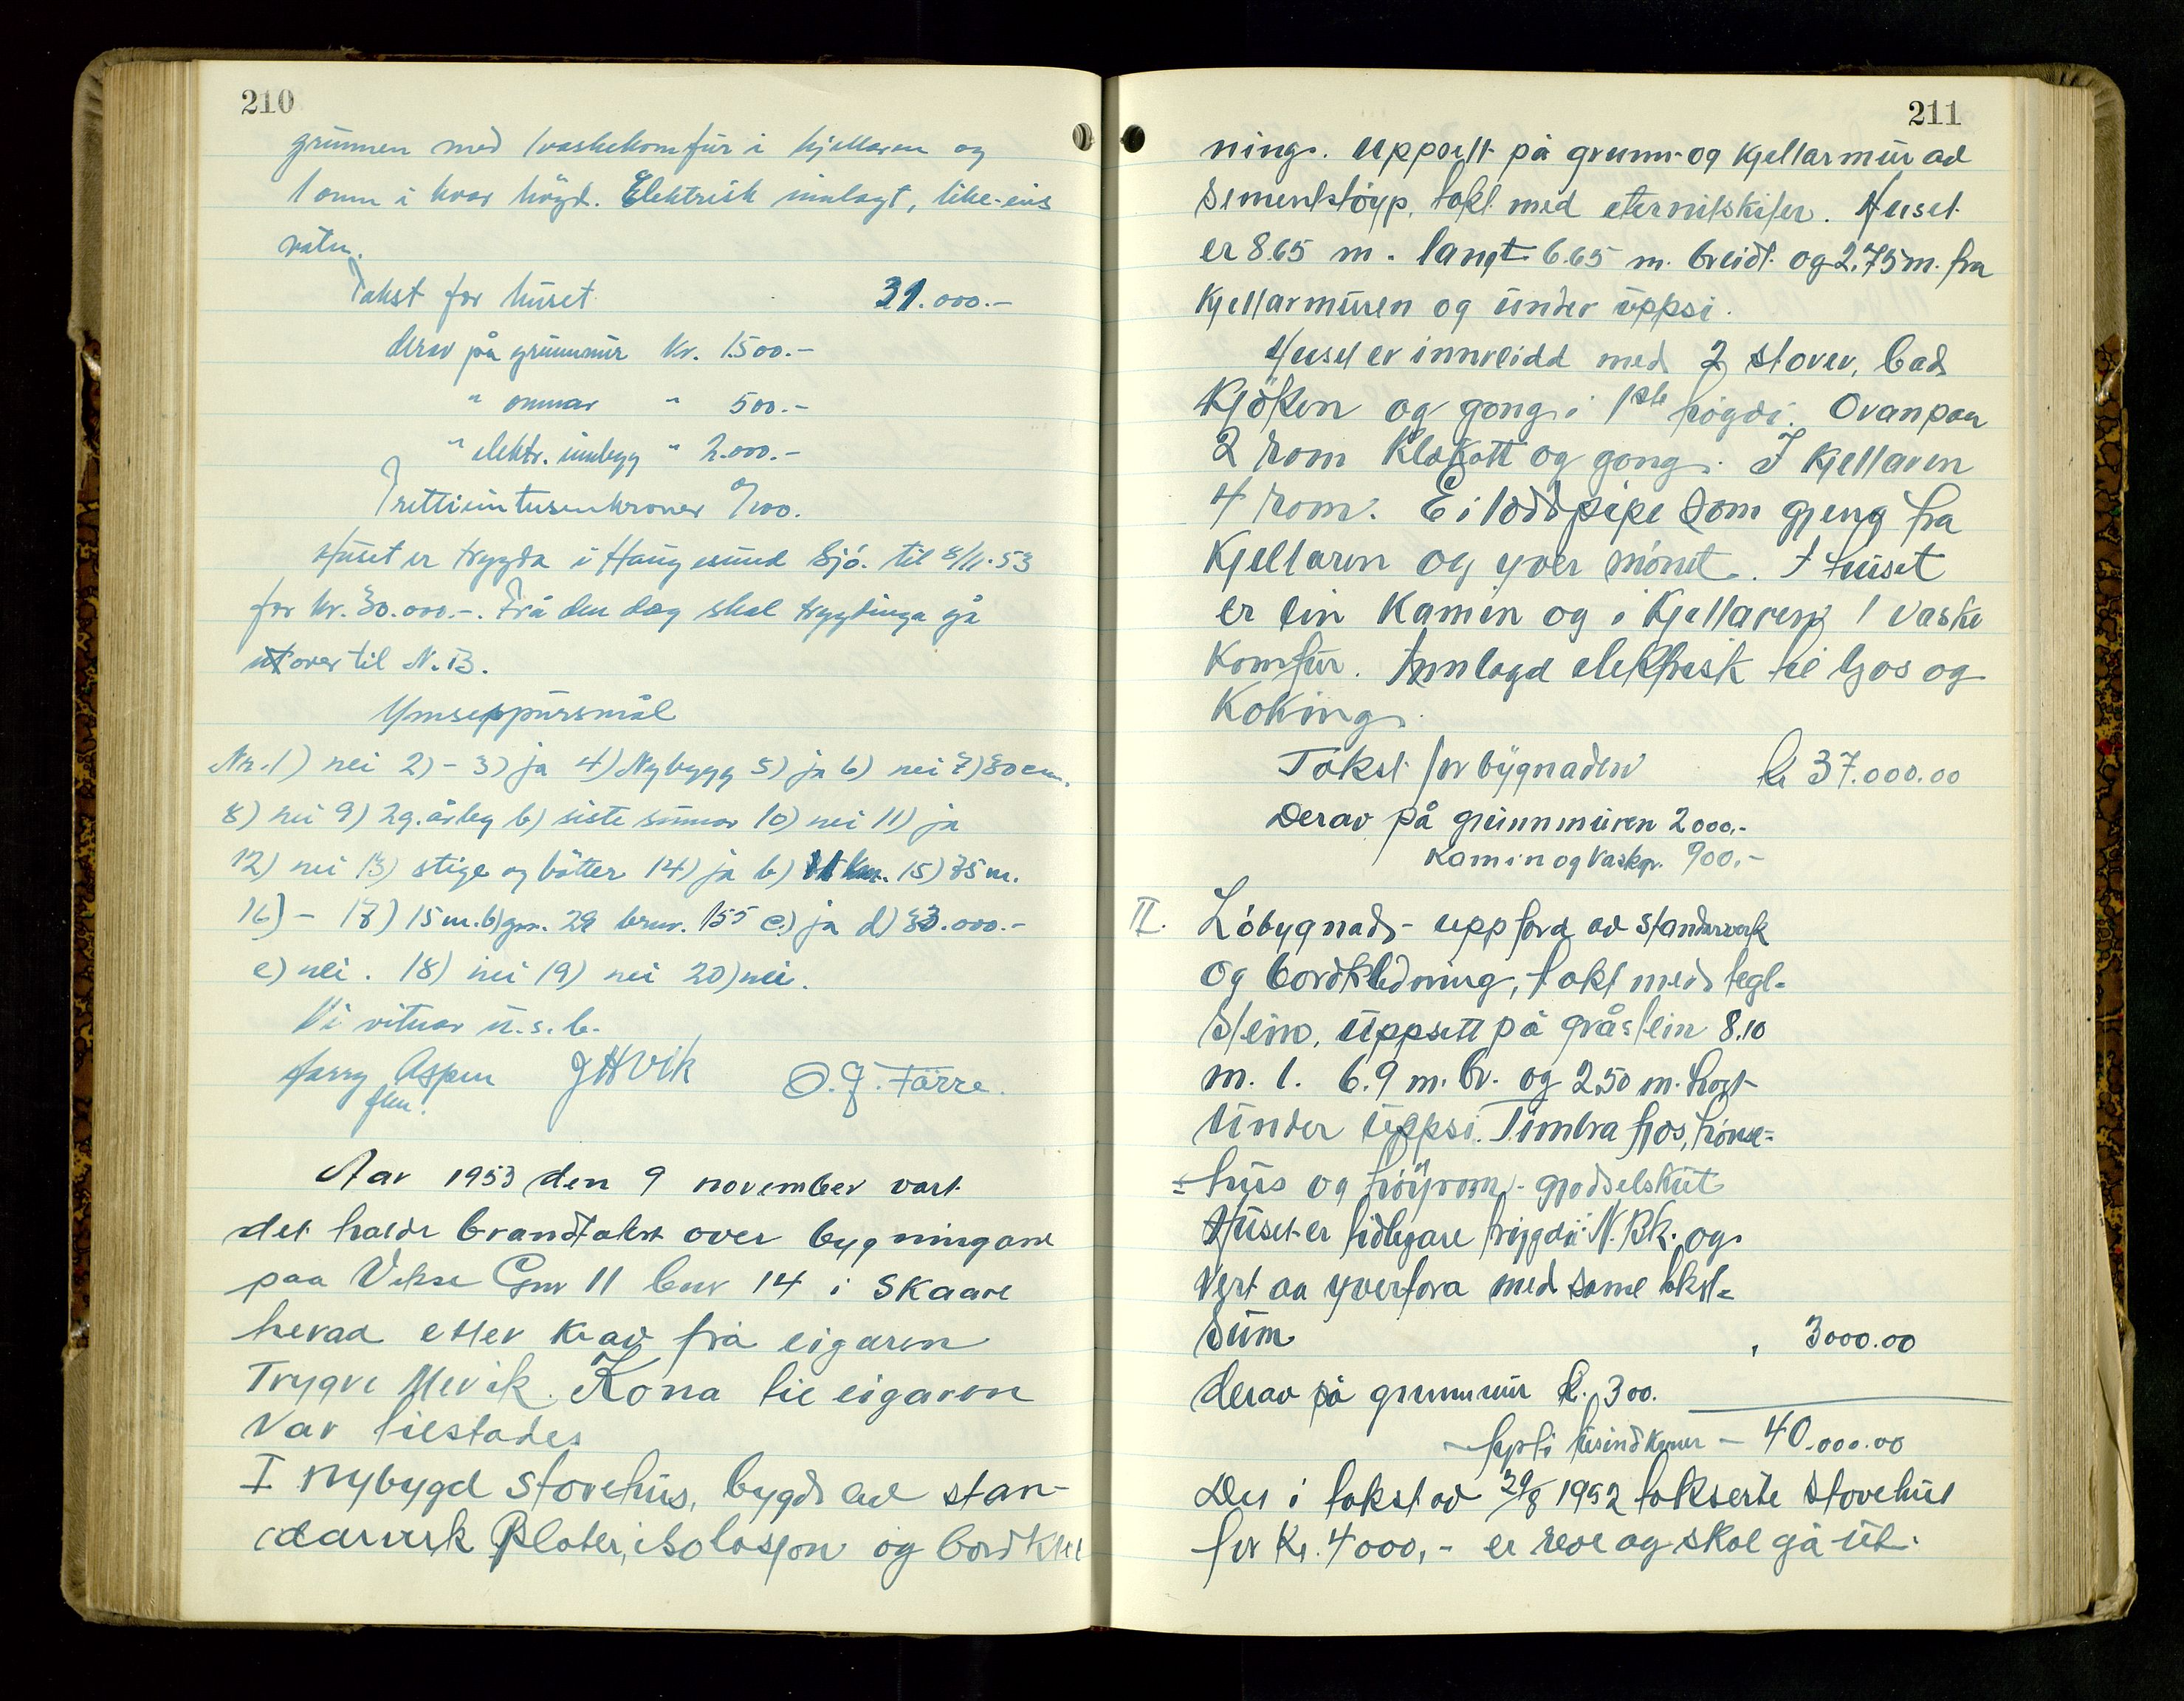 210
grunnen med 1 vaskekomfur i kjellaren og
1 omn i kvar högd. Elektrisk innlagt, like-eins
vatn.
Takst for huset 31.000.-
derav på grunnmur kr. 1500.-
" omnar " 500.-
" elektr. innlegg " 2.000.-
Trettiein tusen kroner 0/100.
Huset er trygda i Haugesund Sjö. til 8/11.53
for kr. 30.000.-. Frå den dag skal trygdinga gå
utover til N.B.
Ymse spursmål
Nr. 1) nei 2) - 3) ja 4) Nybygg 5) ja 6) nei 7) 30 cm.
8) nei 9) 2 g. årleg b) siste sumar 10) nei 11) ja
12) nei 13) stige og bötter 14) ja b) 11 km. 15) 35 m.
16) - 17) 15 m. b) gnr. 29 brnr. 155 c) ja d) 33.000.-
e) nei. 18) nei 19) nei 20) nei.
Vi vitnar u.s.b.
Aspen J H Vik O. J.Förre.
Aar 1953 den 9 november vart
det haldt brandtakst over bygningane
paa Vikse Gnr 11 bnr 14 i Skaare
herad etter krav frå eigaren
Trygve Mevik. Kona til eigaren
var tilstades
I Nybygd stovehus, bygd av stan-
darverk Plater, isolasjon og bordkle
211
ning. Uppsett på grunn- og kjellarmur av
sementstöyp, takt med eternitskifer. Huset
er 8.65 m. langt 6.65 m. breidt og 2.75 m. fra
kjellarmuren og under uppsi.
Huset er innreidd med 2 stover, bad
Kjöken og gong i 1ste högdi. Ovanpaa
2 rom klekott og gong. I kjellaren
4 rom. Ei loddpipe som gjeng fra
Kjellaren og yver mönet. I huset
er ein Kamin og i Kjellaren 1 vaske
komfur. Innlagd elektrisk til ljos og
Koking.
Takst for bygnaden kr 37.000.00
Derav på grunnmuren 2000,-
Kamin og vaskgr. 900,-
II. Löbygnad - uppförd av standarverk
og bordkledning, takt med tegl-
stein, uppsett på gråstein 8.10
m. l. 6.9 m. br. og 2.50 m. högt
under uppsi. Timbra fjos, hönse-
hus og höyrom - gjödselskut
Huset er tidlegare trygda i N. Bk. og
vert aa yverföra med same takst-
sum , 3000.00
derav på grunnmur kr. 300.
förti tusind kroner - 40.000.00
Det i takst av 29/8 1952 takserte stovehus
for Kr. 4000,- er reve og skal gå ut.